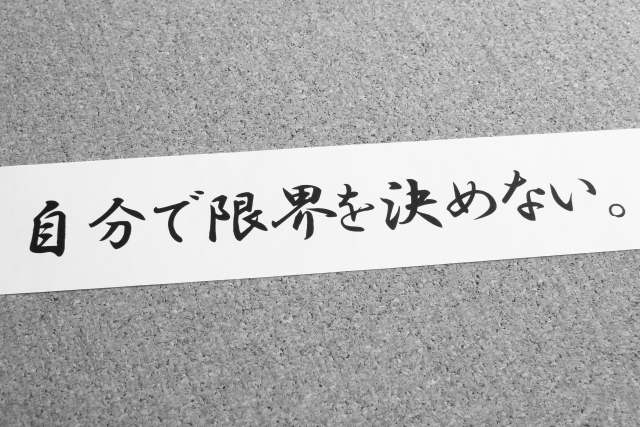 自分で限界を決めない。